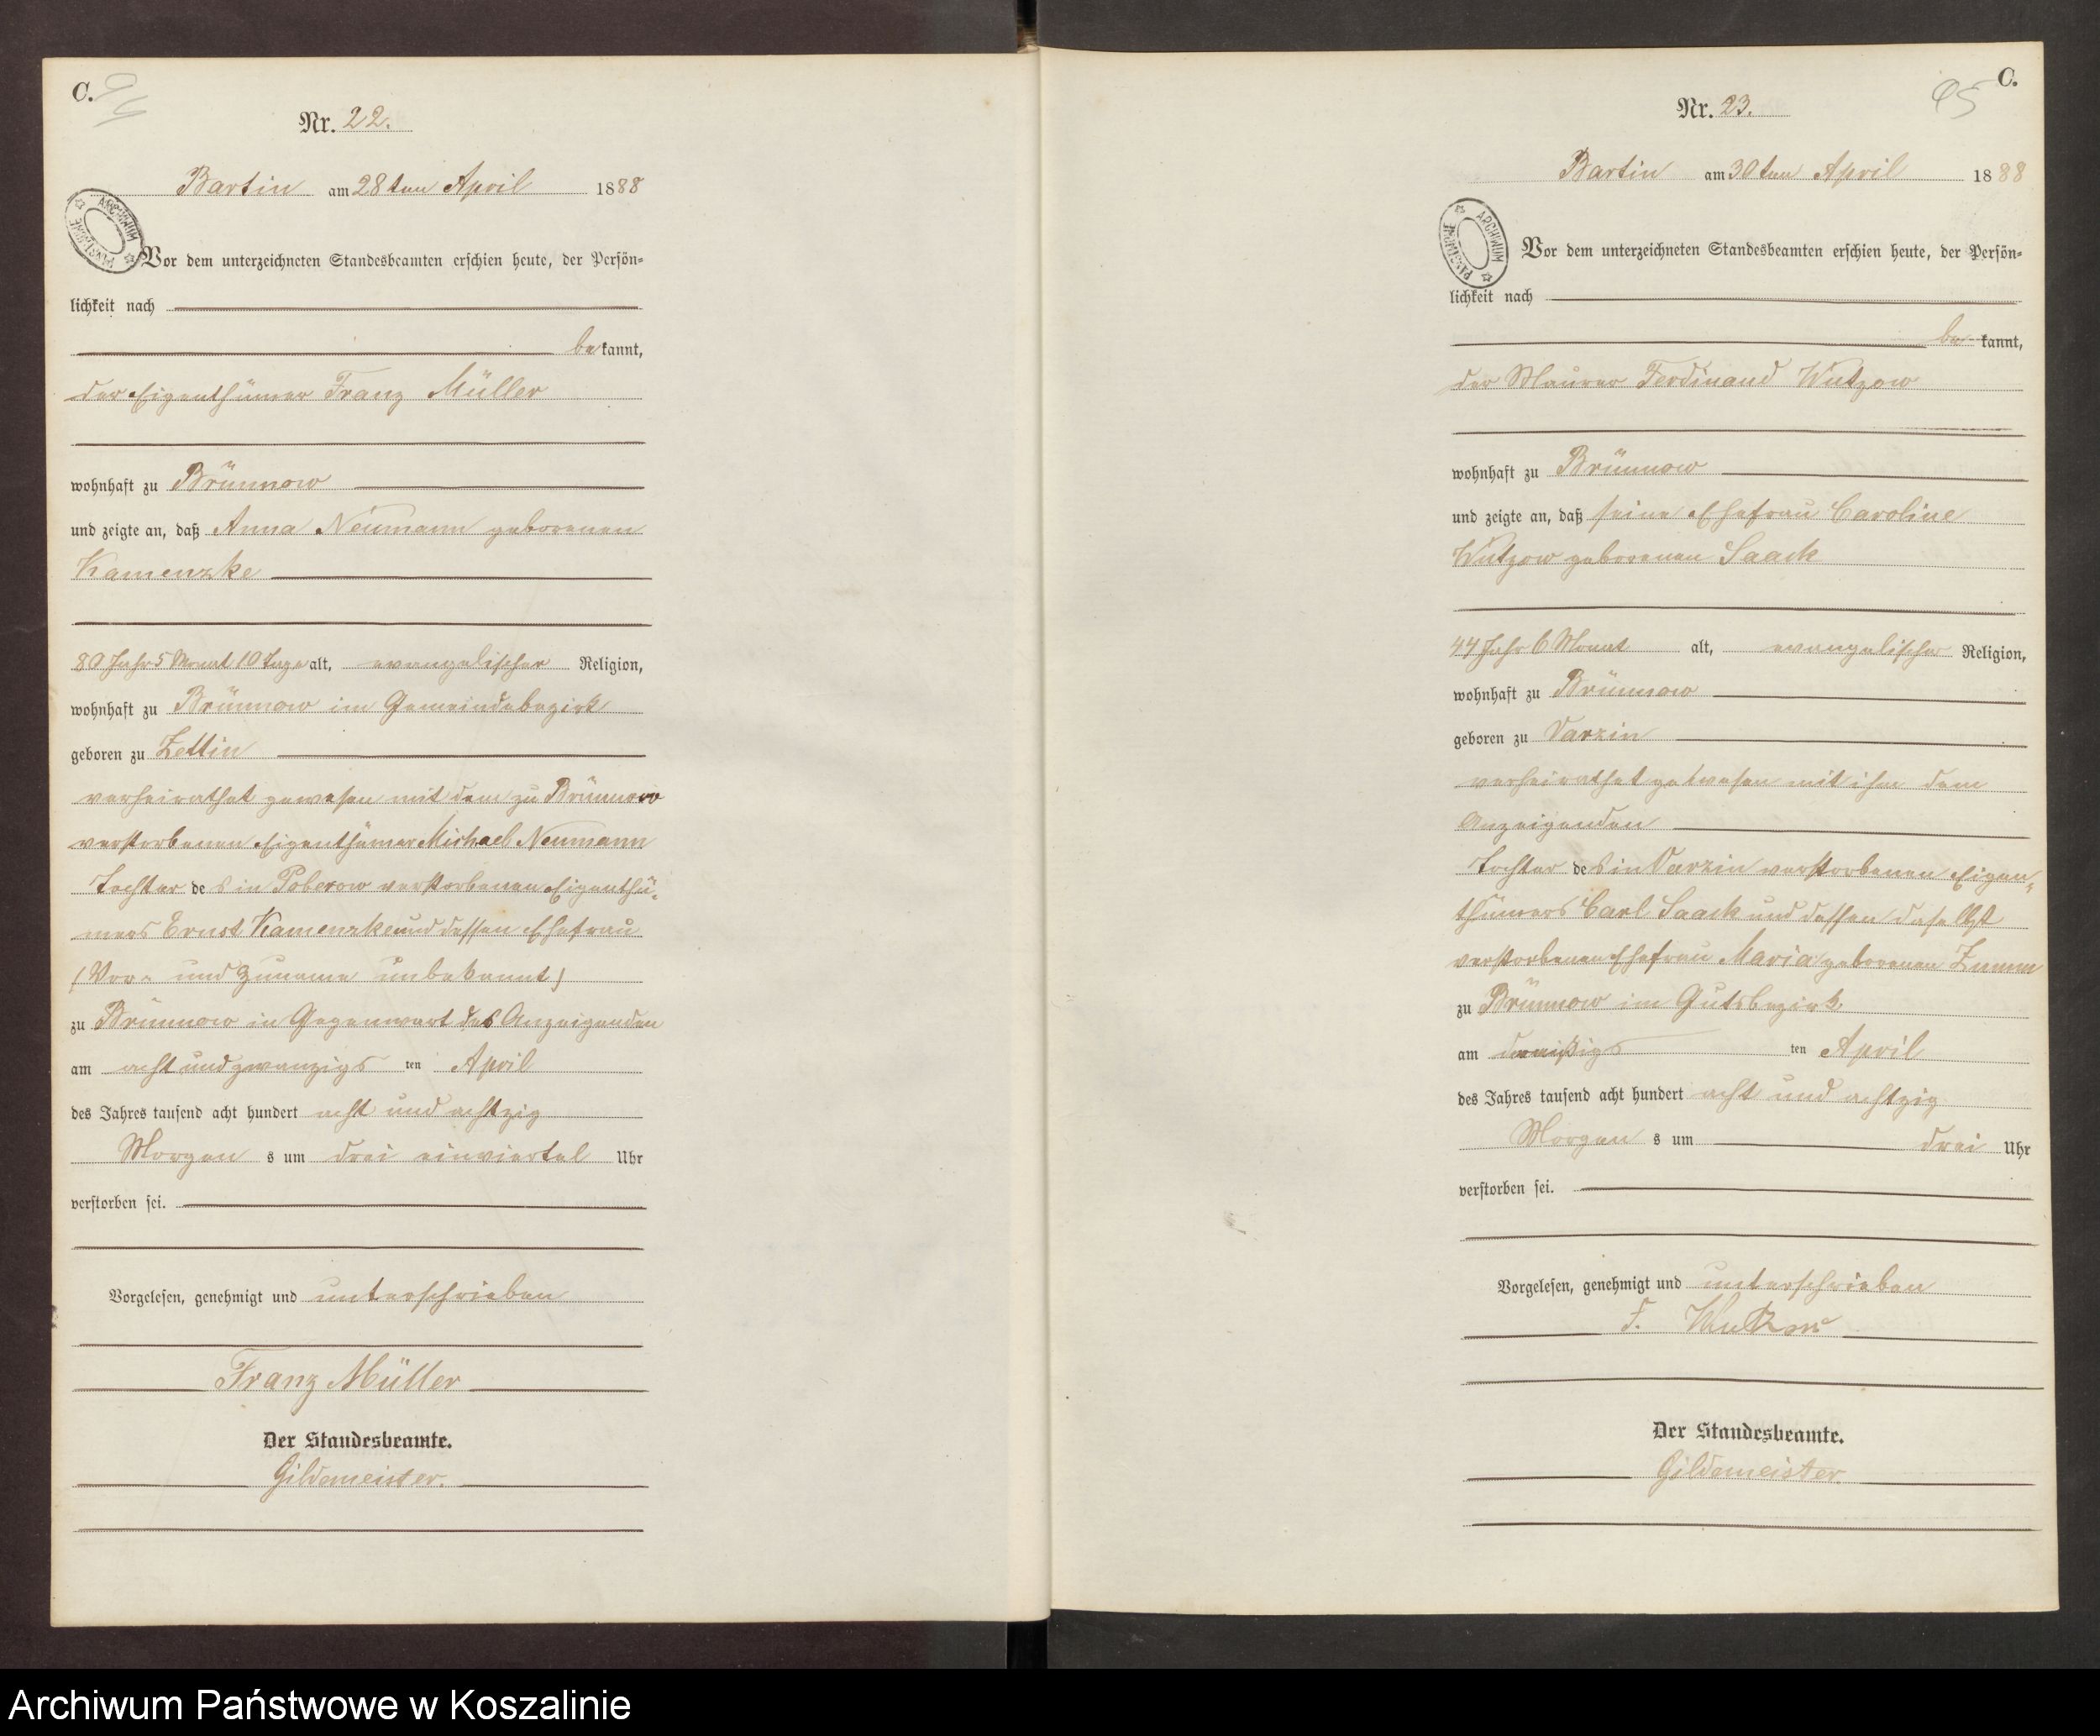 C.
Nr. 22.
Bartin am 28ten April 1888
ARCHIWUM PAŃSTWOWE
Vor dem unterzeichneten Standesbeamten erschien heute, der Persön=
lichkeit nach
bekannt,
der Eigenthümer Franz Müller
wohnhaft zu Brünnow
und zeigte an, daß Anna Neumann geborenen
Kamenzke
80 Jahr 5 Monat 10 Tage alt, evangelischer Religion,
wohnhaft zu Brünnow im Gemeindebezirk
geboren zu Zettin
verheirathet gewesen mit dem zu Brünnow
verstorbenen Eigenthümer Michael Neumann
Tochter des in Poberow verstorbenen Eigenthü=
mers Ernst Kamenzke und dessen Ehefrau
(Vor= und Zuname unbekannt)
zu Brünnow in Gegenwart des Anzeigenden
am acht und zwanzigsten April
des Jahres tausend acht hundert acht und achtzig
Morgens um drei einviertel Uhr
verstorben sei.
Vorgelesen, genehmigt und unterschrieben
Franz Müller
Der Standesbeamte.
Gildemeister.
95 C.
Nr. 23.
Bartin am 30ten April 1888
ARCHIWUM PAŃSTWOWE
Vor dem unterzeichneten Standesbeamten erschien heute, der Persön=
lichkeit nach
bekannt,
der Maurer Ferdinand Wutzow
wohnhaft zu Brünnow
und zeigte an, daß seine Ehefrau Caroline
Wutzow geborenen Saack
44 Jahr 6 Monat alt, evangelischer Religion,
wohnhaft zu Brünnow
geboren zu Varzin
verheirathet gewesen mit ihm dem
Anzeigenden
Tochter des in Varzin verstorbenen Eigen=
thümers Carl Saack und dessen daselbst
verstorbenen Ehefrau Maria geborenen Zumm
zu Brünnow im Gutsbezirk
am dreißigsten April
des Jahres tausend acht hundert acht und achtzig
Morgens um drei Uhr
verstorben sei.
Vorgelesen, genehmigt und unterschrieben
F. Wutzow
Der Standesbeamte.
Gildemeister
Archiwum Państwowe w Koszalinie